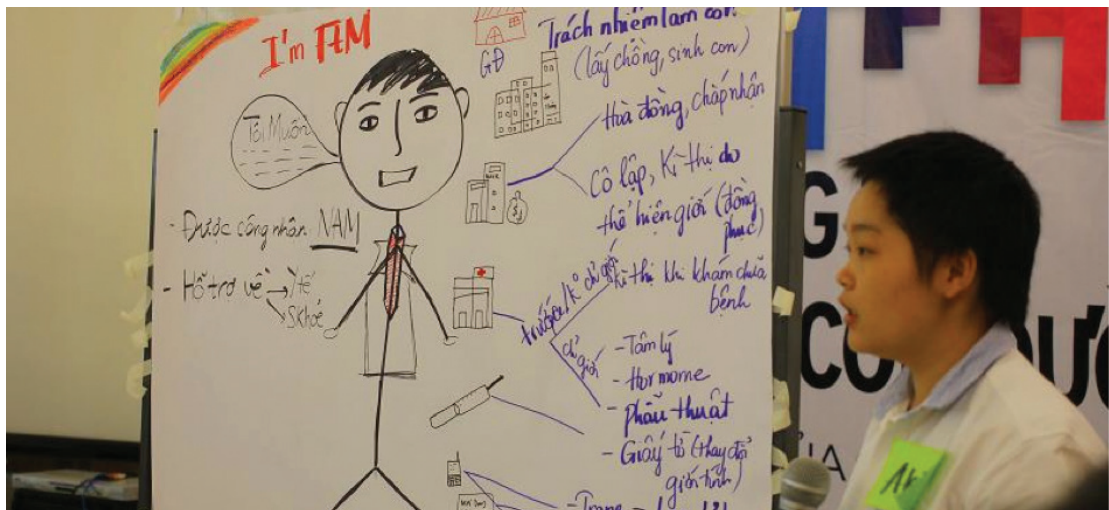 I'm FTM
Tôi Muốn
- Được công nhận NAM
- Hỗ trợ về → Y tế
→ S.khoẻ
GĐ
Trách nhiệm làm con
(lấy chồng, sinh con)
Hoà đồng, chấp nhận
Cô lập, Kì thị do
thể hiện giới (đồng
phục)
kì thị khi khám chữa
bệnh
chỉ giới
- Tâm lý
- Hormone
- phẫu thuật
- Giấy tờ (thay đổi
giới tính)
- Trang
G
CO